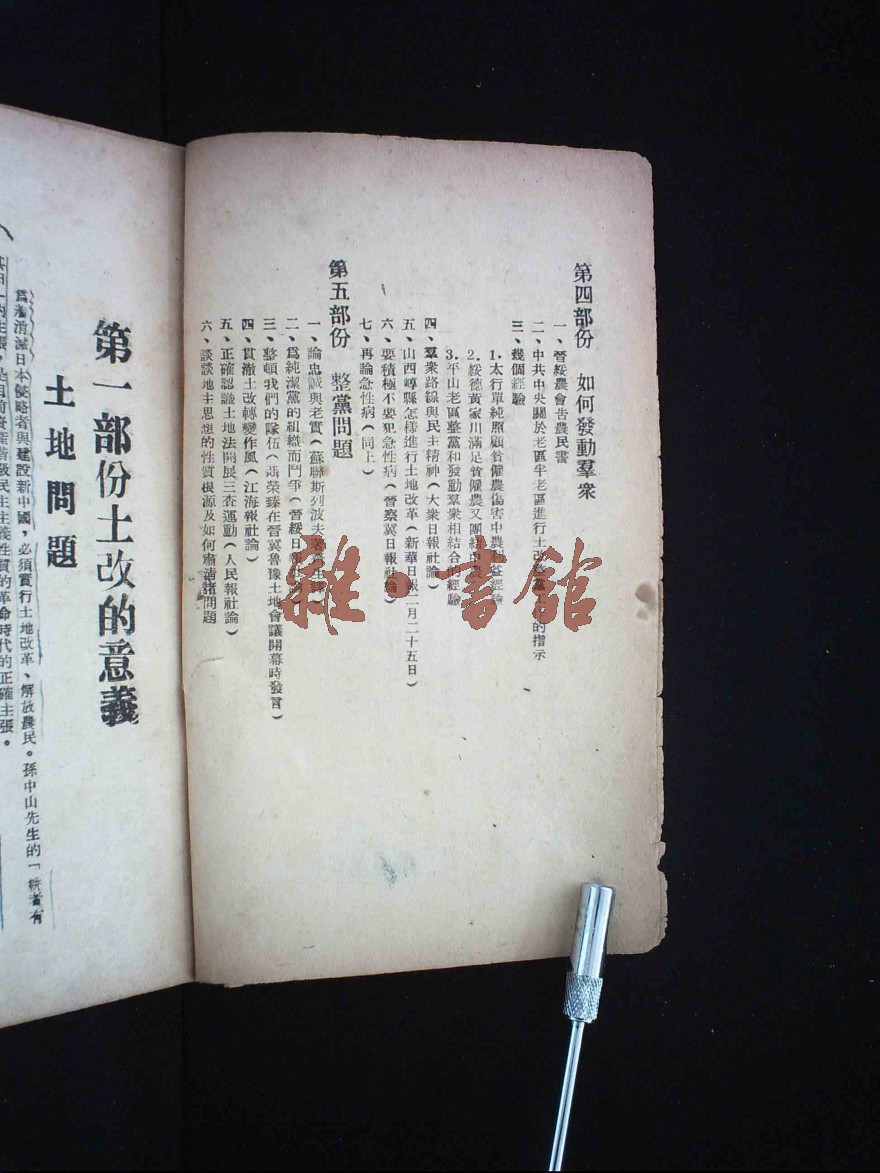 第四部份　如何發動羣衆
一、晉綏農會告農民書
二、中共中央關於老區半老區進行土改的指示
三、幾個經驗
1.太行單純照顧貧僱農傷害中農利益經驗
2.綏德黃家川滿足貧僱農又團結中農
3.平山老區整黨和發動羣衆相結合的經驗
四、羣衆路線與民主精神（大衆日報社論）
五、山西崞縣怎樣進行土地改革（新華日報二月二十五日）
六、要積極不要犯急性病（晉察冀日報社論）
七、再論急性病（同上）
第五部份　整黨問題
一、論忠誠與老實（蘇聯斯列波夫著
二、爲純潔黨的組織而鬥爭（晉綏日報社論）
三、整頓我們的隊伍（聶榮臻在晉冀魯豫土地會議開幕時發言）
四、貫澈土改轉變作風（江海報社論）
五、正確認識土地法開展三查運動（人民報社論）
六、談談地主思想的性質根源及如何肅清諸問題
雜·書館
第一部份土改的意義
土地問題
爲着消滅日本侵略者與建設新中國，必須實行土地改革、解放農民。孫中山先生的「耕者有
其田」的主張，是目前資產階級民主主義性質的革命時代的正確主張。